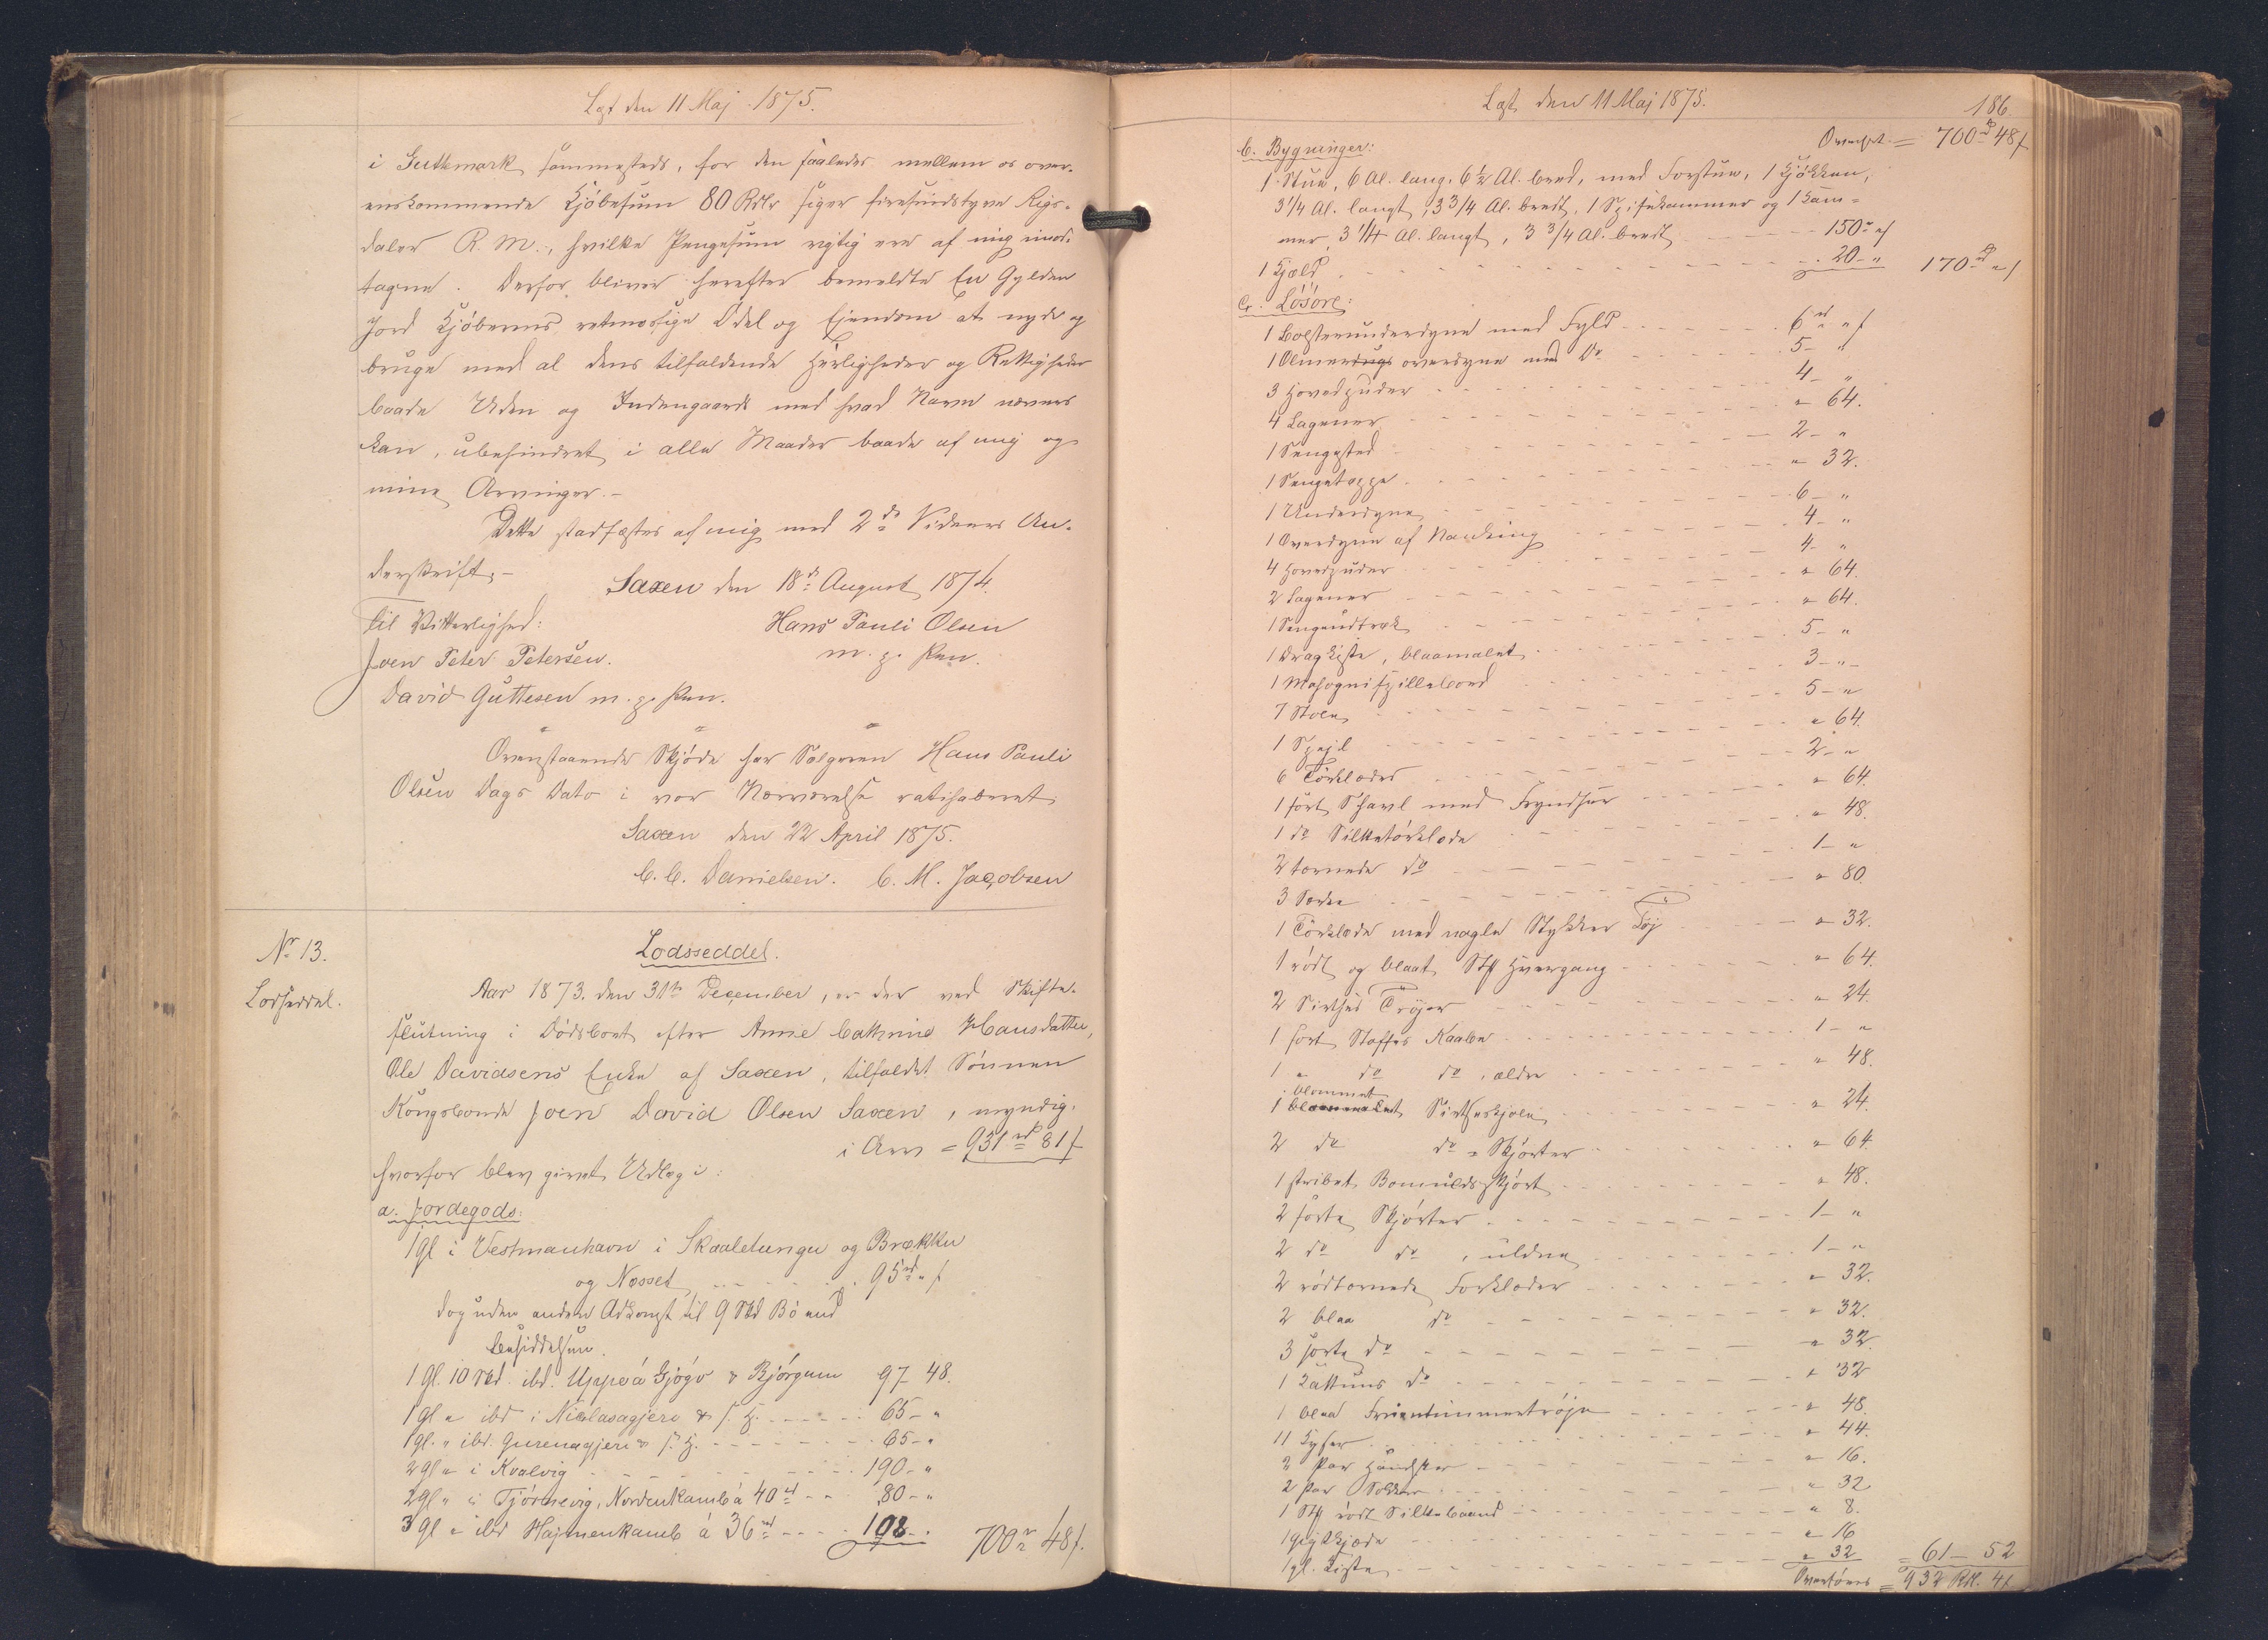 Lgt den 11 Maj 1875.
i Guttemark sammesteds, for den saaledes mellem os over-
enskommende Kjöbesum 80 Rdlr siger firesindstyve Rigs-
daler R. M., hvilke Pengesum rigtig ere af mig imod-
tagne. Derfor bliver herefter bemeldte En Gylden
Jord Kjöberens retmæssige Odel og Ejendom at nyde og
bruge med al dens tilfaldende Herligheder og Rettigheder
baade Uden og Indengaards med hvad Navn nævnes
kan, ubehindret i alle Maader baade af mig og
mine Arvinger.-
Dette stadfæstes af mig med 2de Vidners Un-
derskrift.-
Saxen den 18de August 1874.
Til Vitterlighed:
Hans Pauli Olsen
Joen Peter Petersen.
m. p. Pen.
David Guttesen m. p. Pen.
" " "
Ovenstaaende Skjöde har Sælgeren Hans Pauli
Olsen Dags Dato i vor Nærværelse ratihaberet.
Saxen den 22 April 1875.
C. C. Danielsen. C. M. Jacobsen
No 13.
Lodseddel.
Lodsseddel.
Aar 1873. den 31te December, er der ved Skifte-
slutning i Dödsboet efter Anne Cathrine Hansdatter,
Ole Davidsens Enke af Saxen, tilfaldet Sönnen
Kongsbonde Joen David Olsen Saxen, myndig,
i Arv = 931 rd 81 s
hvorfor blev givet Udlæg i:
a. Jordegods:
1 gl i Vestmanhavn i Skaaletungu og Brekku
og Nesset - - - 95 rd " s
dog uden anden Adkomst til 9 Skd Bö end
besiddelsen.
1 gl. 10 Skd. ibd. Uppeá Gjógv & Bjórgum 97 48.
1 gl " ibd i Niclasagjero & s. H. - - - 65 - "
1 gl. " ibd. Gurenagjero & s. H. - - - 65 - "
2 gl " i Kvalvig - - - 190 - "
2 gl " i Tjörnevig, Nordenkamb á 40 rd - - 80 - "
3 gl " ibd Hajmenkamb á 36 rd - - - 108 - "
700 r 48 s.
Lgt den 11 Maj 1875.
186
Overført = 700 rd 48 s
b. Bygninger:
1 Stue, 6 Al. lang, 6 1/2 Al. bred, med Forstue, 1 Kjökken,
3 1/4 Al. langt, 3 3/4 Al. bredt, 1 Spisekammer og 1 Kam-
mer 3 1/4 Al. langt, 3 3/4 Al. bredt - - - 150 " s
1 Kjæld - - - 20 - " 170 rd " s
c. Lösöre:
1 Bolsterunderdyne med Fyld - - - 6 rd " s
1 Olmerdugs overdyne med Do - - - 5 - "
3 Hovedpuder - - - 4 - "
4 Lagener - - - " 64.
1 Sengested - - - 2 - "
1 Sengetæppe - - - " 32.
1 Underdyne - - - 6 - "
1 Overdyne af Nanking - - - 4 - "
4 Hovedpuder - - - 4 - "
2 Lagener - - - " 64.
1 Sengeudtræk - - - " 64.
1 Dragkiste, blaamalet - - - 5 - "
1 Mahogni spillebord - - - 3 - " -
7 Stole - - - 5 - "
1 Spejl - - - " 64.
6 Törklæder - - - 2 - "
1 sort Schavl med Fryndser - - - " 64.
1 do Silketörklæde - - - " 48.
2 tærnede do - - - 1 - "
3 Særke - - - " 80.
1 Törklæde med nogle Stykker Töj - - - " 32.
1 rödt og blaat Stk Hvergang - - - " 64.
2 Sirthes Tröjer - - - " 24.
1 sort Stoffes Kaabe - - - 1 - "
1 " do do, ældre - - - " 48.
blommet
1 Sirtseskjole - - - " 24.
2 do do " Skjörter - - - " 64
1 stribet Bomuldsskjört - - - " 48.
2 sorte Skjörter - - - 1 - "
2 do do, uldne - - - 1 - "
2 rödtærnede Forklæder - - - " 32.
2 blaa do - - - " 32.
3 sorte do - - - " 32
1 Kattuns do - - - " 32
1 blaa Fruentimmertröje - - - " 48.
11 Kyser - - - " 44.
2 Par Handsker - - - " 16.
2 Par Sokker - - - " 32
1 Stk rödt Silkebaand - - - " 8.
1 Gigtkjæde - - - " 16
1 gl. Kiste - - - " 32 = 61 - 52
Overføres = 932 Rd. 4 s